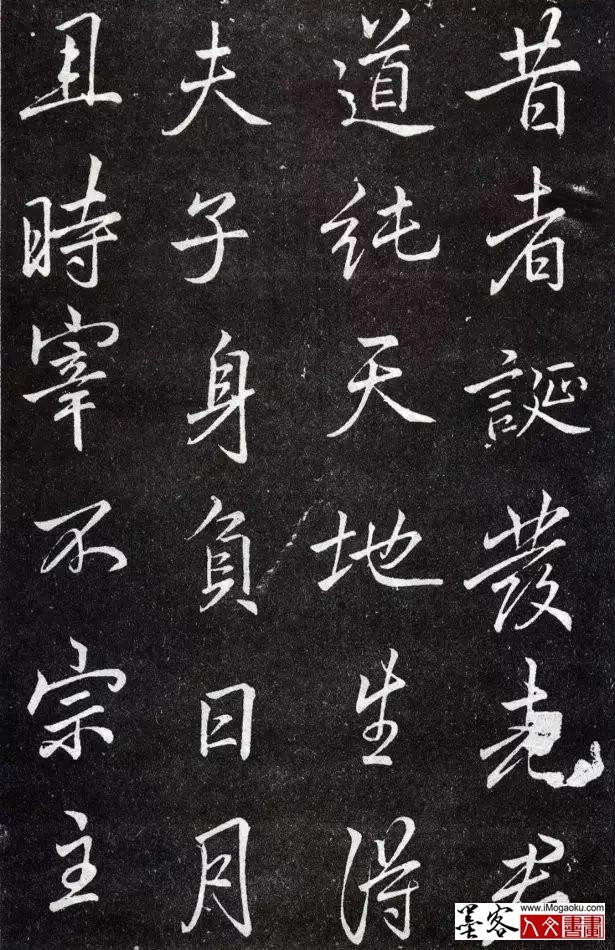 昔者誕發
道純天地生得
夫子身負日月
且時宰不宗主
墨客
www.iMogaoku.com
人文書畫